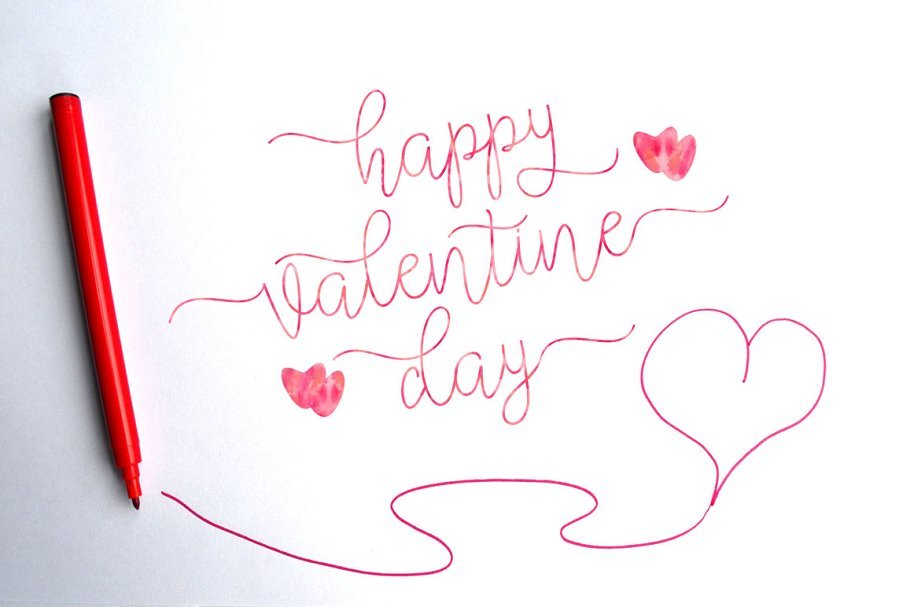 happy
valentine
day